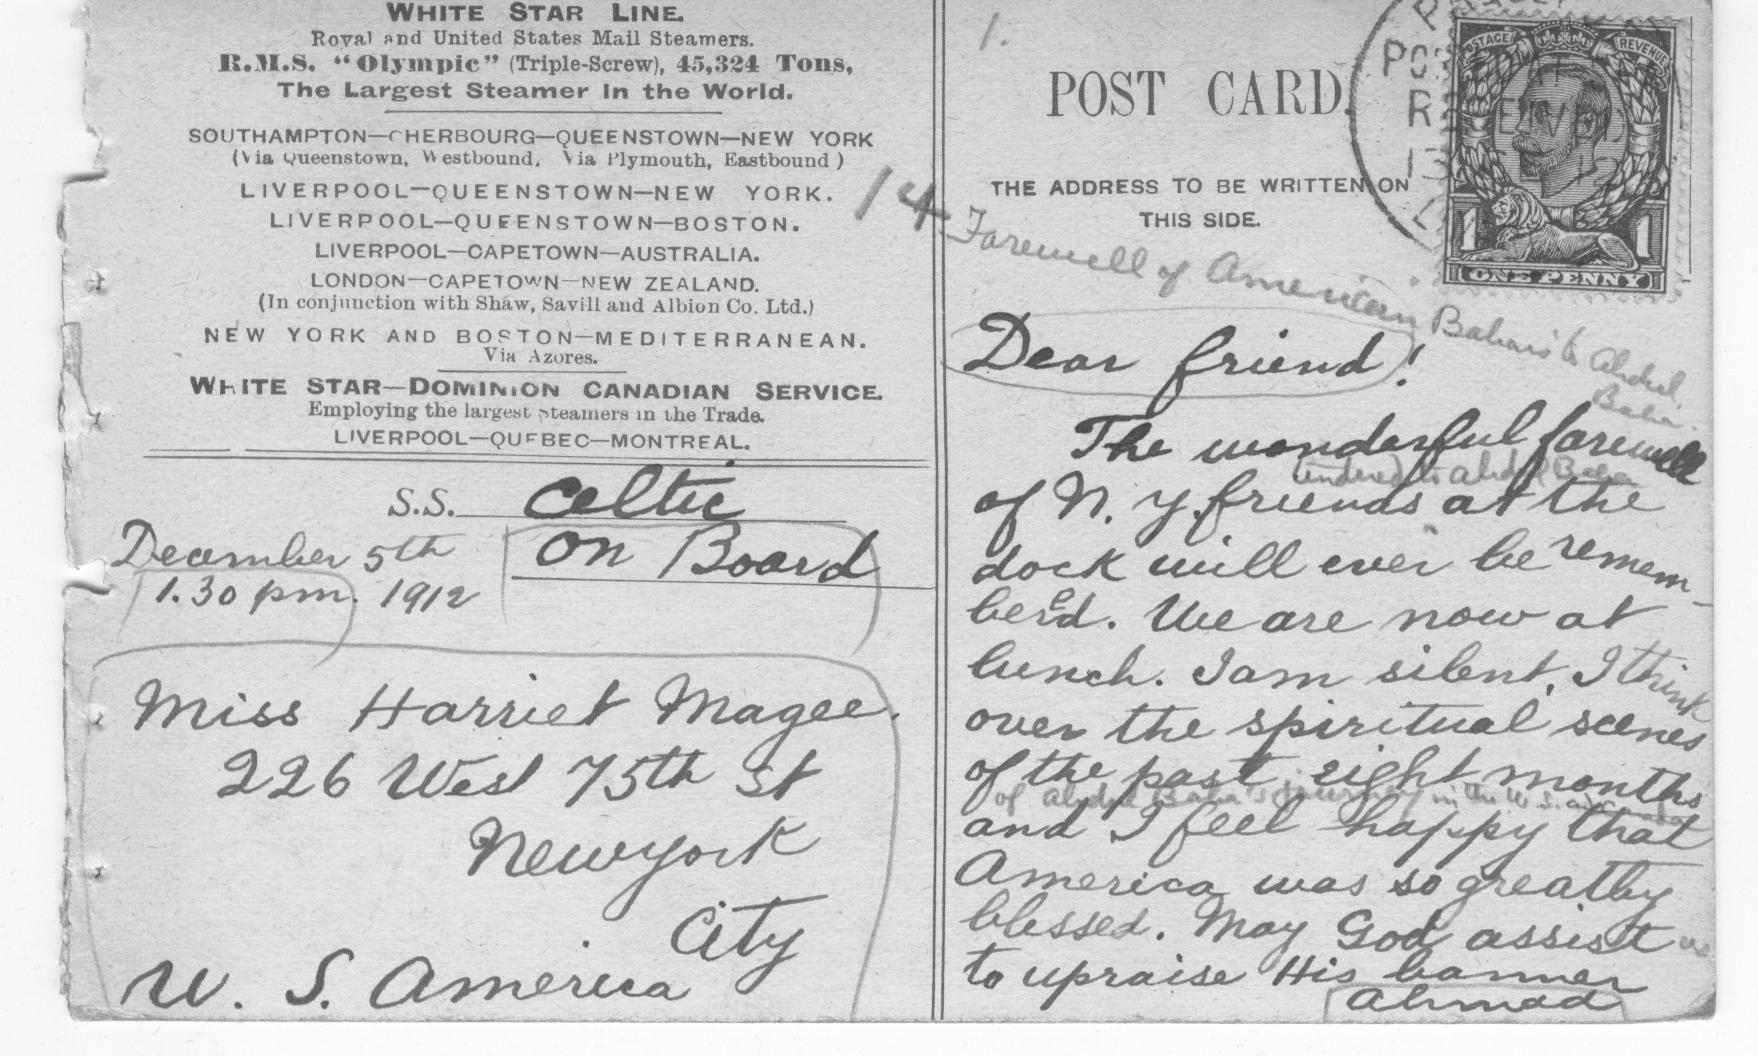 WHITE STAR LINE.
Royal and United States Mail Steamers.
R.M.S. "Olympic" (Triple-Screw), 45,324 Tons,
The Largest Steamer in the World.
SOUTHAMPTON—CHERBOURG—QUEENSTOWN—NEW YORK
(Via Queenstown, Westbound, Via Plymouth, Eastbound)
LIVERPOOL—QUEENSTOWN—NEW YORK.
LIVERPOOL—QUEENSTOWN—BOSTON.
LIVERPOOL—CAPETOWN—AUSTRALIA.
LONDON—CAPETOWN—NEW ZEALAND.
(In conjunction with Shaw, Savill and Albion Co. Ltd.)
NEW YORK AND BOSTON—MEDITERRANEAN.
Via Azores.
WHITE STAR—DOMINION CANADIAN SERVICE.
Employing the largest steamers in the Trade.
LIVERPOOL—QUEBEC—MONTREAL.
S.S. Celtic
On Board
December 5th
1.30 pm. 1912
Miss Harriet Magee.
226 West 75th St
New York
City
U. S. America
1.
POST CARD.
THE ADDRESS TO BE WRITTEN ON
THIS SIDE.
POSTAGE REVENUE
1 1
ONE PENNY
14
Farewell of American Bahais to Abdul
Baha.
Dear friend!
The wonderful farewell
tendered to Abdul Baha
of N. Y. friends at the
dock will ever be remem-
berd. We are now at
e
lunch. I am silent. I think
over the spiritual scenes
of the past eight months
of Abdul Baha's journey in the U.S. and
and I feel happy that
America was so greatly
blessed. May God assist us
to upraise His banner
Ahmad